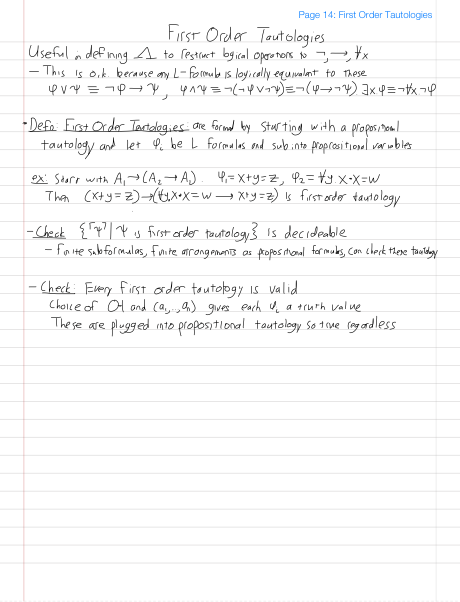 Page 14: First Order Tautologies
First Order Tautologies
Useful in defining Λ to restrict logical operations to ¬, →, ∀x
– This is o.k. because any L-formula is logically equivalent to these
φ ∨ ψ ≡ ¬φ → ψ, φ∧ψ ≡ ¬(¬φ ∨ ¬ψ) ≡ ¬(φ → ¬ψ) ∃x φ ≡ ¬∀x ¬φ
• Defn: First Order Tautologies: are formed by starting with a propositional
tautology and let φᵢ be L formulas and sub into proprositional variables
ex: Start with A₁ → (A₂ → A₁). φ₁ = x+y=z, φ₂ = ∀y x·x=w
Then (x+y=z) → (∀y x·x=w → x+y=z) is first order tautology
– Check {⌜ψ⌝ | ψ is first order tautology} is decideable
– finite subformulas, finite arrangements as propositional formulas, can check these tautology
– Check: Every first order tautology is valid
Choice of and (a₁,...,aₙ) gives each φᵢ a truth value
These are plugged into propositional tautology so true regardless